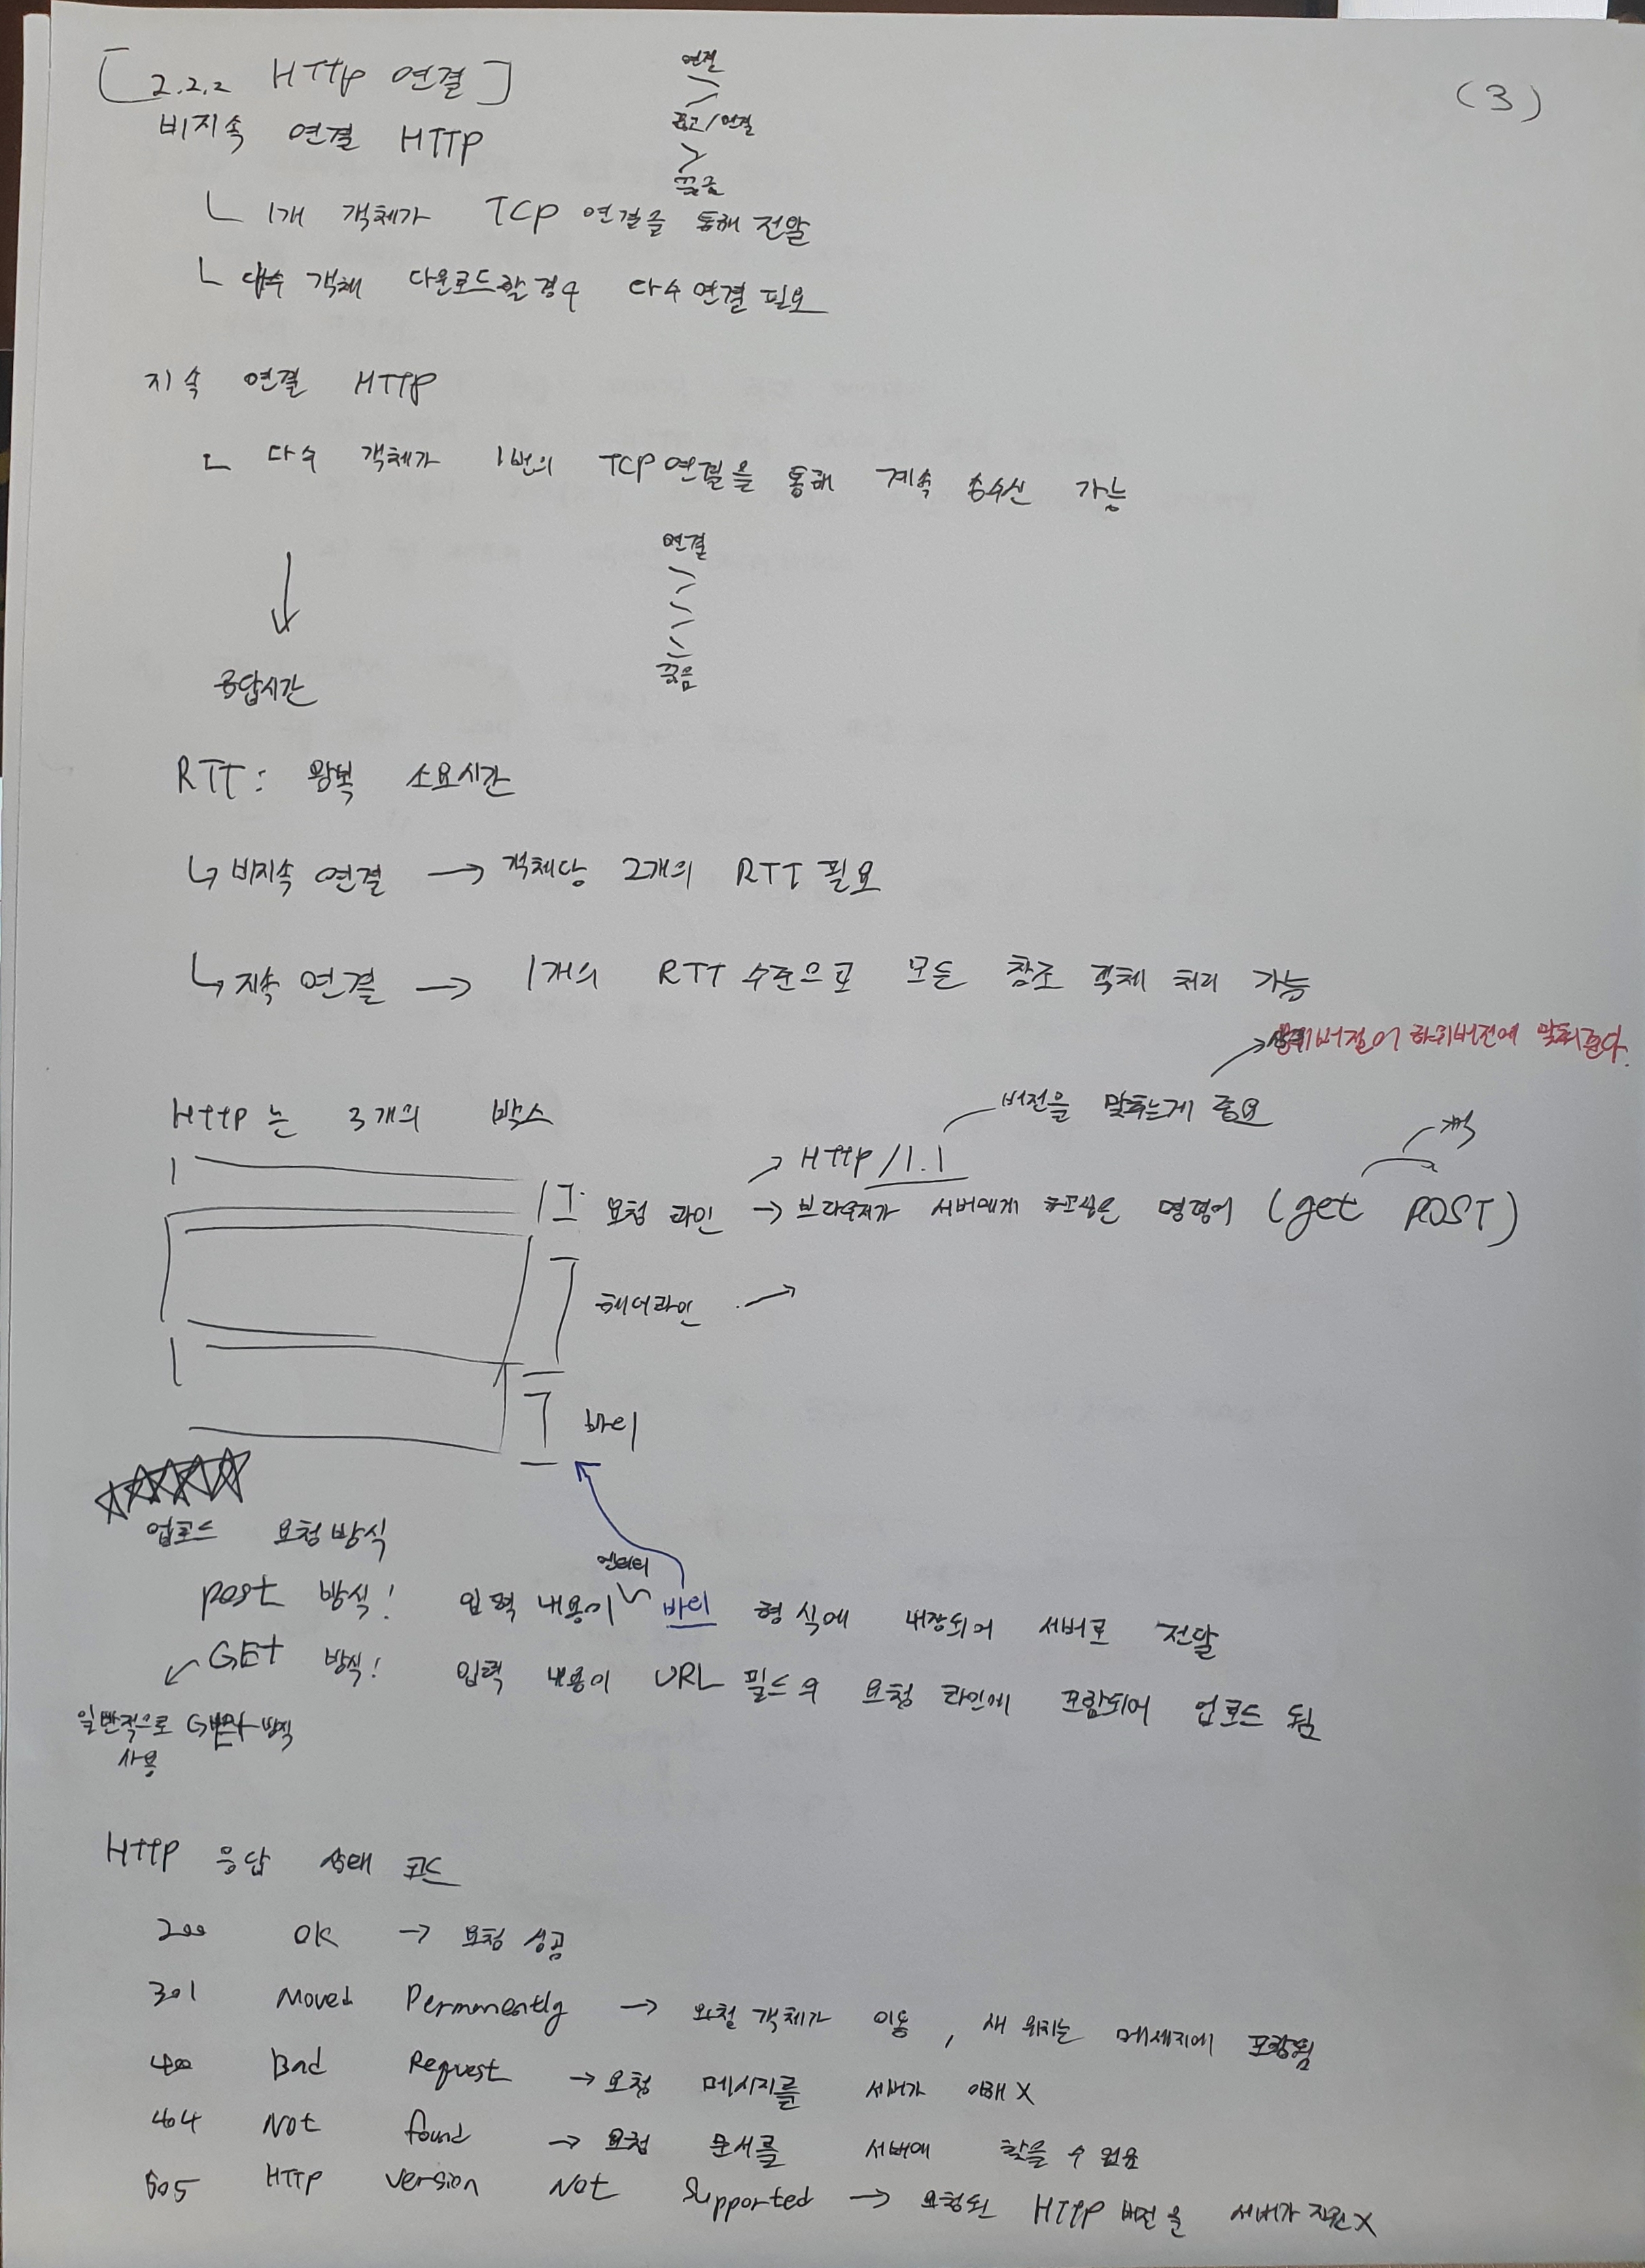 [2.2.2 HTTP 연결]
(3)
연결
끊고/연결
끊음
비지속 연결 HTTP
ㄴ 1개 객체가 TCP 연결을 통해 전달
ㄴ 다수 객체 다운로드할 경우 다수 연결 필요
지속 연결 HTTP
ㄴ 다수 객체가 1번의 TCP 연결을 통해 계속 송수신 가능
연결
끊음
↓
응답시간
RTT: 왕복 소요시간
↳ 비지속 연결 → 객체당 2개의 RTT 필요
↳ 지속 연결 → 1개의 RTT 수준으로 모든 참조 객체 처리 가능
→ 상위버전이 하위버전에 맞춰준다.
버전을 맞추는게 중요
HTTP는 3개의 박스
→ HTTP/1.1
요청 라인 → 브라우저가 서버에게 명령어 (get POST)
헤더라인 →
바디
업로드 요청방식
엔터티
post 방식! 입력 내용이 바디 형식에 내장되어 서버로 전달
GET 방식! 입력 내용이 URL 필드의 요청 라인에 포함되어 업로드 됨
일반적으로 GET 방식
사용
HTTP 응답 상태 코드
200 OK → 요청 성공
301 Moved Permanently → 요청 객체가 이동, 새 위치는 메세지에 포함됨
400 Bad Request → 요청 메시지를 서버가 이해 X
404 Not found → 요청 문서를 서버에 찾을 수 없음
505 HTTP version Not Supported → 요청된 HTTP 버전을 서버가 지원X